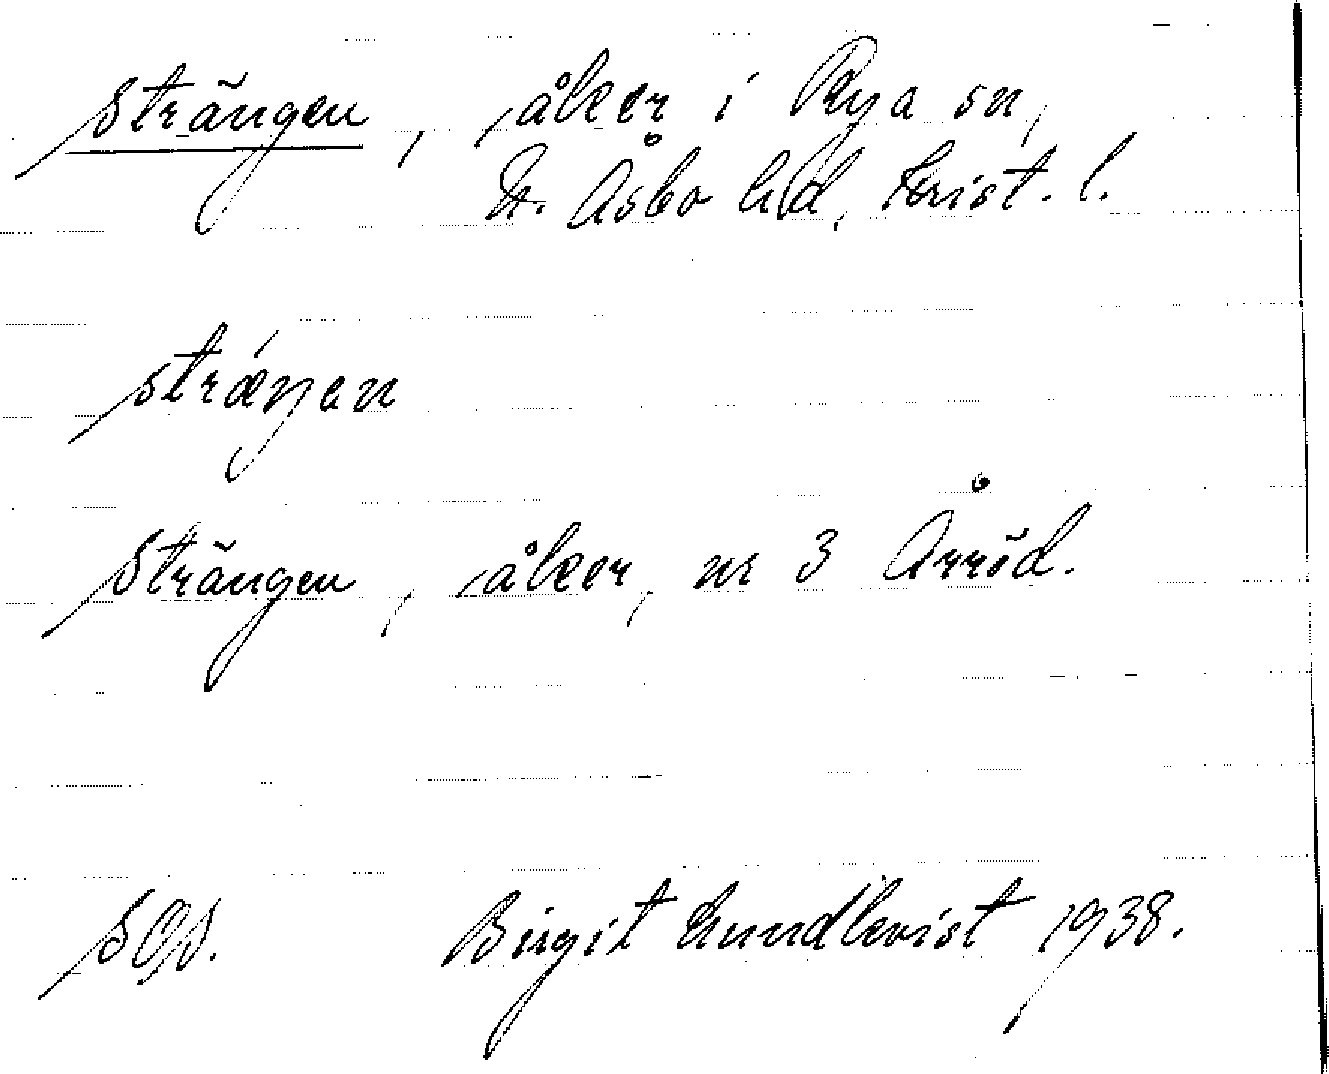 Strängen, åker i Rya sn,
N. Åsbo hd, Krist. l.
stræ´ŋen
Strängen, åker, nr 3 Årröd.
SOA. Birgit Lundkvist 1938.